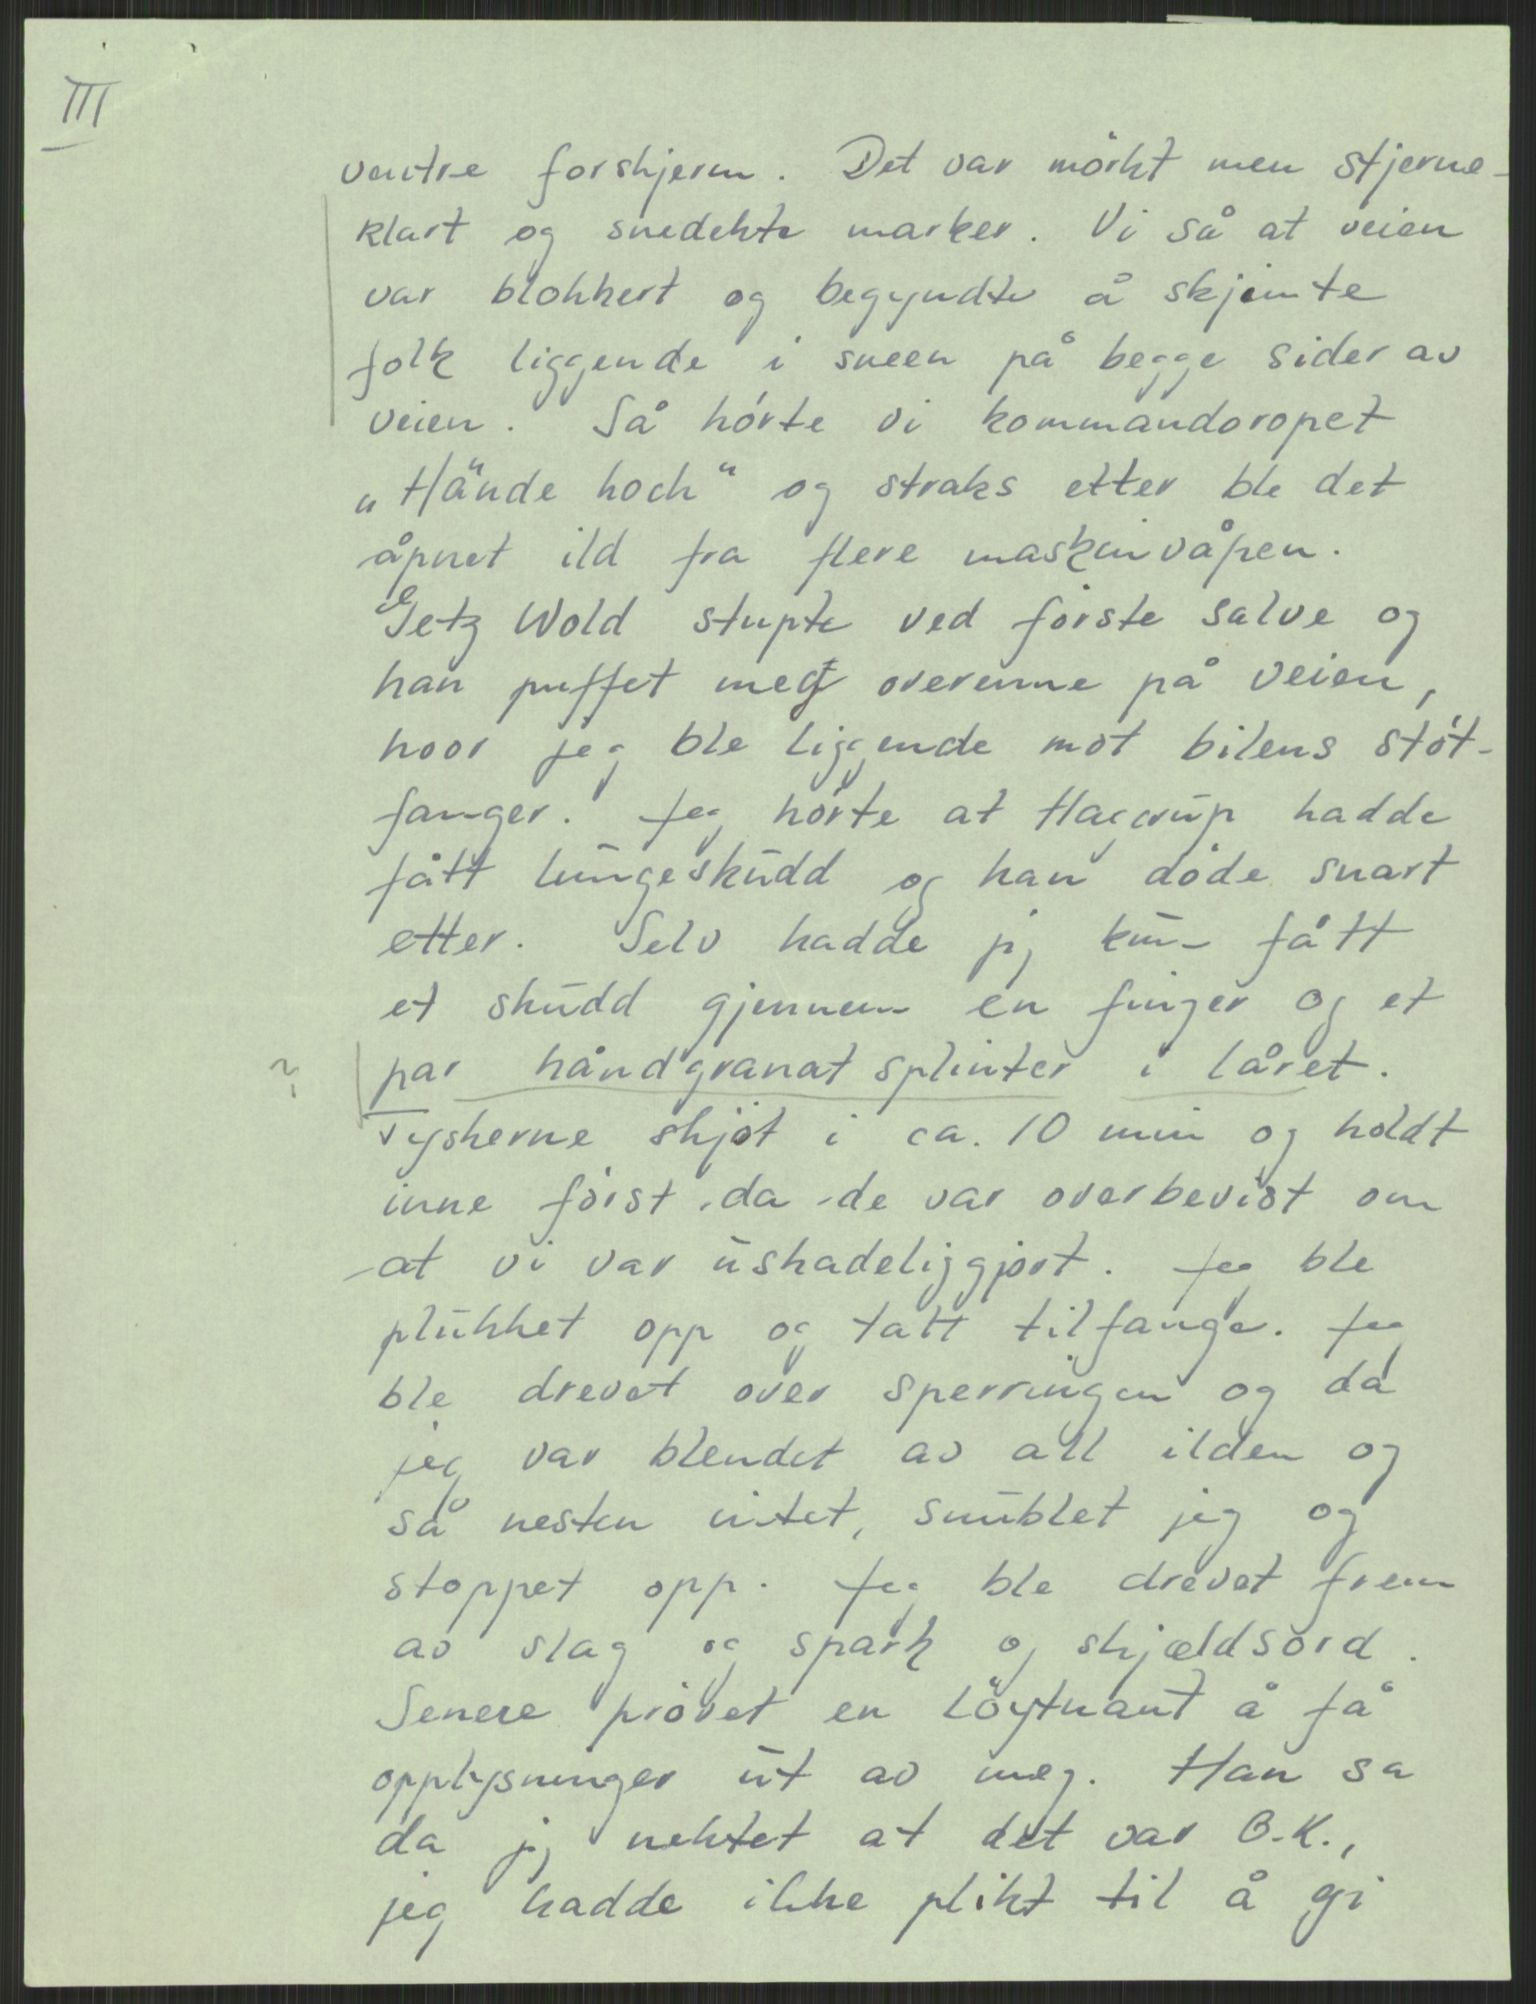 III
venstre forskjerm. Det var mörkt men stjerne-
klart og snedekte marker. Vi så at veien
var blokkert og begyndte å skjimte
folk liggende i sneen på begge sider av
veien. Så hörte vi kommandoropet
„Hände hoch" og straks etter ble det
åpnet ild fra flere maskinvåpen.
Getz Wold stupte ved förste salve og
han puffet meg overenne på veien,
hvor jeg ble liggende mot bilens stöt-
fanger. Jeg hörte at Haggrup hadde
fått lungeskudd og han döde snart
etter. Selv hadde jeg kun fått
et skudd gjennem en finger og et
? par håndgranat splinter i låret.
Tyskerne skjöt i ca. 10 min og holdt
inne först da de var overbevist om
at vi var uskadeliggjort. Jeg ble
plukket opp og tatt tilfange. Jeg
ble drevet over sperringen og da
jeg var blendet av all ilden og
så nesten intet, snublet jeg og
stoppet opp. Jeg ble drevet frem
av slag og spark og skjældsord.
Senere prövet en löytnant å få
opplysninger ut av meg. Han sa
da jeg nektet at det var O.K.,
jeg hadde ikke plikt til å gi